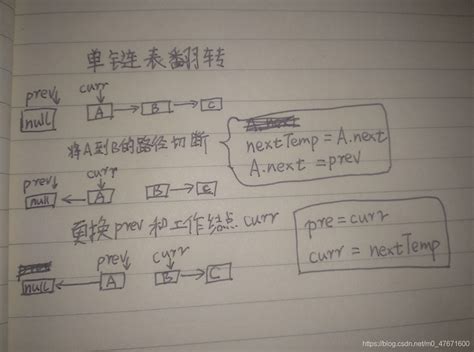 单链表翻转
prev curr
null A B C
将A到B的路径切断
nextTemp = A.next
A.next = prev
prev curr
null A B C
更换prev和工作结点curr
pre = curr
curr = nextTemp
prev curr
null A B C
https://blog.csdn.net/m0_47671600